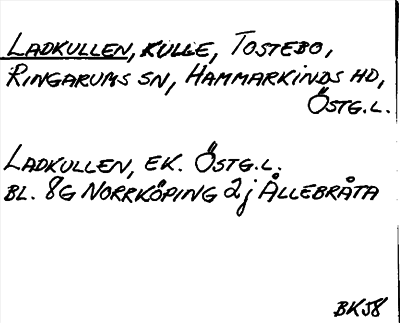 LADKULLEN, KULLE, TOSTEBO,
RINGARUMS SN, HAMMARKINDS HD,
ÖSTG.L.
LADKULLEN, EK. ÖSTG.L.
BL. 8G NORRKÖPING 2j ÅLLEBRÅTA
BK58